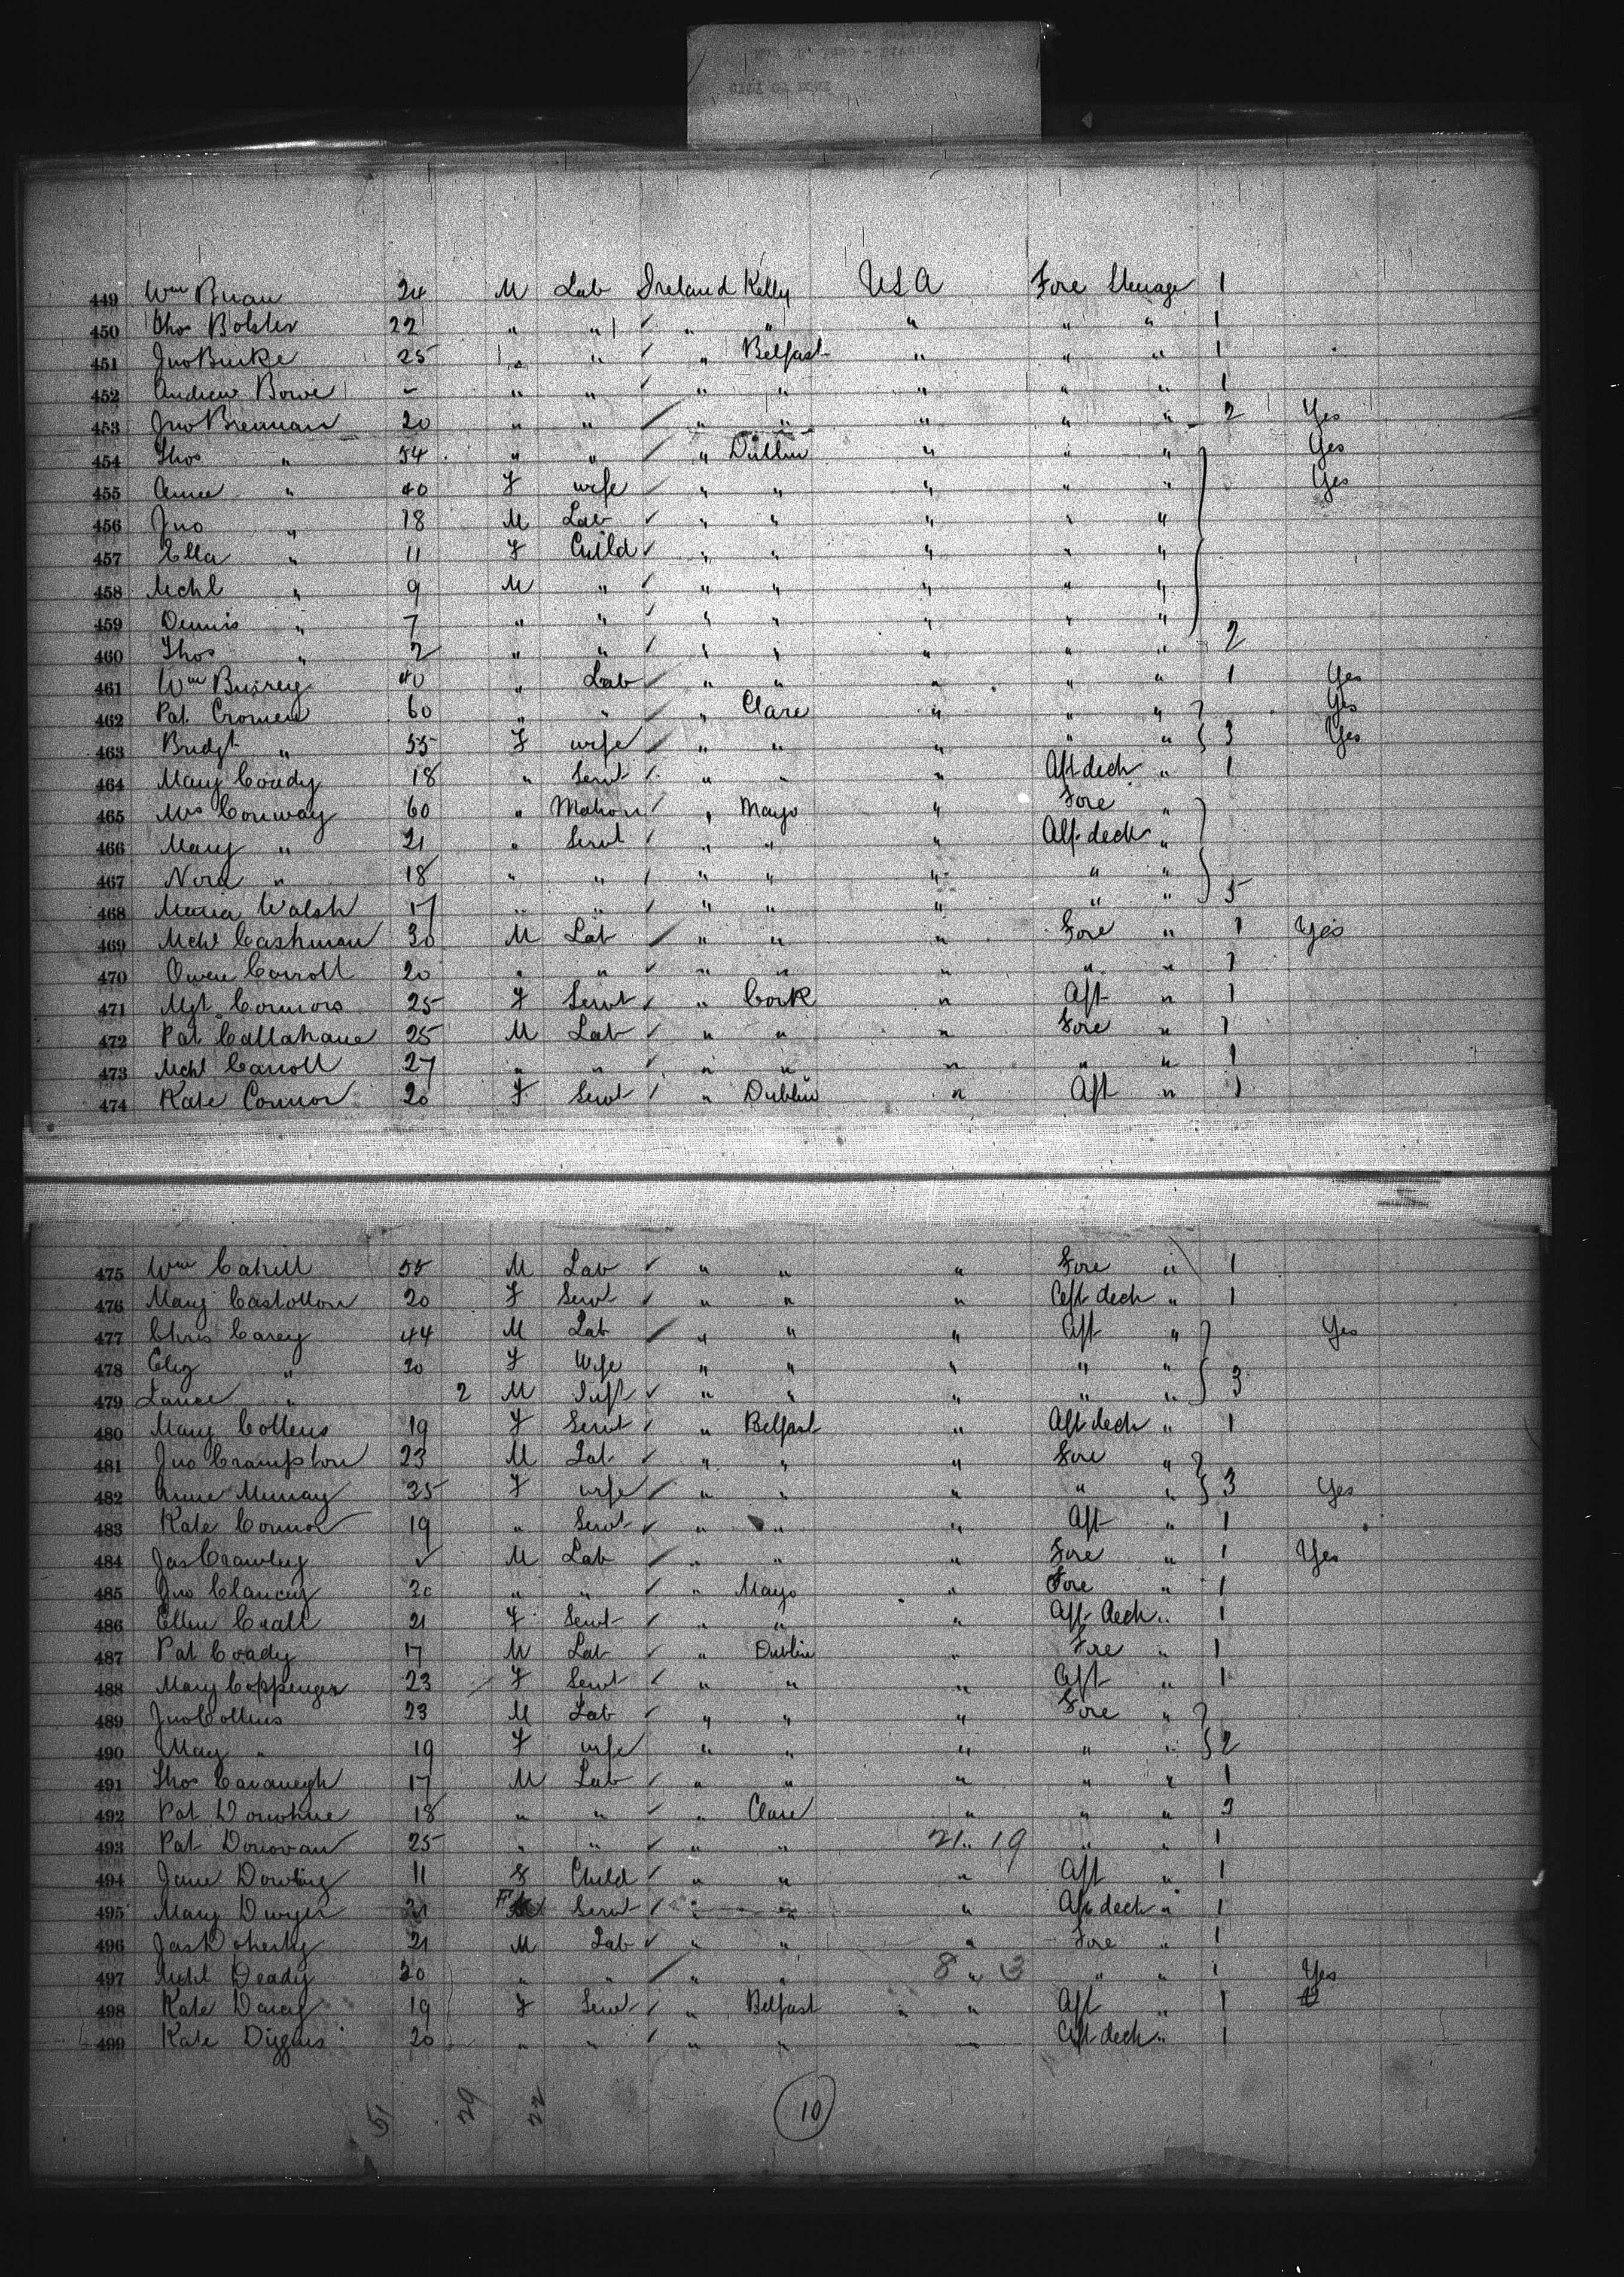 449 Wm Brian 24 M Lab Ireland Kelly USA Fore Steerage 1
450 Thos Bolster 22 " " " " " " " 1
451 Jno Burke 25 " " " Belfast " " " 1
452 Andrew Bowe - " " " " " " " 1
453 Jno Brennan 20 " " " " " " " 2 Yes
454 Thos " 54 " " " Dublin " " " Yes
455 Anne " 40 F wife " " " " " Yes
456 Jno " 18 M Lab " " " " "
457 Ella " 11 F Child " " " " "
458 Mchl " 9 M " " " " " "
459 Dennis " 7 " " " " " " "
460 Thos " 2 " " " " " " " 2
461 Wm 40 " Lab " " " " " 1 Yes
462 Pat. 60 " " " Clare " " " Yes
463 Bridgt " 55 F wife " " " " " 3 Yes
464 Mary 18 " Servt " " " Aft deck " 1
465 Mrs Conway 60 " Matron " Mayo " Fore "
466 Mary " 21 " Servt " " " Aft deck "
467 Nora " 18 " " " " " " "
468 Maria Walsh 17 " " " " " " " 5
469 Mchl Cashman 30 M Lab " " " Fore " 1 Yes
470 Owen Carroll 20 " " " " " " " 1
471 Mgt Connors 25 F Servt " Cork " Aft " 1
472 Pat Callahane 25 M Lab " " " Fore " 1
473 Mchl Carroll 27 " " " " " " " 1
474 Kate Connor 20 F Servt " Dublin " Aft " 1
475 Wm Cahill 55 M Lab " " " Fore " 1
476 Mary 20 F Servt " " " Aft deck " 1
477 Chris Carey 44 M Lab " " " Aft " Yes
478 Eliz " 30 F Wife " " " " " 3
479 " 2 M Inft " " " " "
480 Mary Collens 19 F Servt " Belfast " Aft deck " 1
481 Jno Crampton 23 M Lab " " " Fore "
482 Anne Murray 35 F wife " " " " " 3 Yes
483 Kate Connor 19 " Servt " " " Aft " 1
484 Jas Crawley M Lab " " " Fore " 1 Yes
485 Jno Clancey 30 " " " Mayo " Fore " 1
486 Ellen 21 F Servt " " " Aft Deck " 1
487 Pat Coady 17 M Lab " Dublin " Fore " 1
488 Mary Coppenger 23 F Servt " " " Aft " 1
489 Jno Collins 23 M Lab " " " Fore "
490 May " 19 F wife " " " " " 2
491 Thos Cavanegh 17 M Lab " " " " " 1
492 Pat Donohue 18 " " " Clare " " " 3
493 Pat Donovan 25 " " " " 21 " 19 " " 1
494 Jane Dowling 11 F Child " " " Aft " 1
495 Mary Dwyer 21 F Servt " " " Aft deck " 1
496 Jas Doherty 21 M Lab " " " Fore " 1
497 Mchl Deady 30 " " " " 8 " 3 " " 1 Yes
498 Kate Darcy 19 F Servt " Belfast " " Aft " 1
499 Kate Diggins 20 " " " " " Aft deck " 1
51 29 22 10